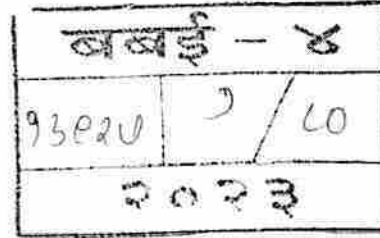 बबई - ४
१३९२५ १ / ८०
२०२३